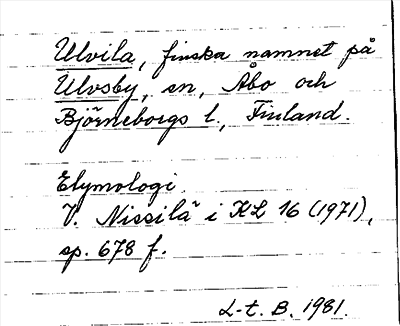 Ulvila, finska namnet på
Ulvsby, sn, Åbo och
Björneborgs l., Finland.
Etymologi.
V. Nissilä i KL 16 (1971),
sp. 678 f.
L-t. B. 1981.